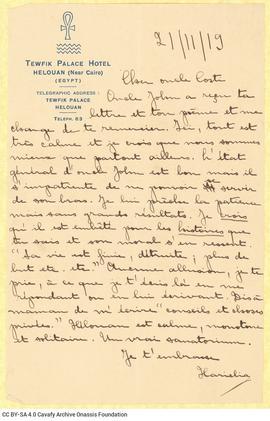 TEWFIK PALACE HOTEL
HELOUAN (Near Cairo)
(EGYPT)
TELEGRAPHIC ADDRESS :
TEWFIK PALACE
HELOUAN
TELEPH. 83
21/11/19
Cher oncle Costi
Oncle John a reçu ta
lettre et ton poème et me
charge de te remercier. Ici, tout est
très calme et je crois que nous sommes
mieux que partout ailleurs. L'état
général d'oncle John est bon mais il
s'impatiente de ne pouvoir se servir
de son bras. Je lui prêche la patience
mais sans grands résultats. Je crois
qu'il est embêté pour les histoires que
tu sais et son moral s'en ressent.
"Sa vie est finie, détruite; plus de
but etc. etc." Aucune allusion, je te
prie, à ce que je t'écris là en me
répondant ou en lui écrivant. Dis à
maman de m'écrire "conseils et choses
privées." Hélouan est calme, monotone
et solitaire. Un vrai sanatorium.
Je t'embrasse
Hariclia
CC BY-SA 4.0 Cavafy Archive Onassis Foundation